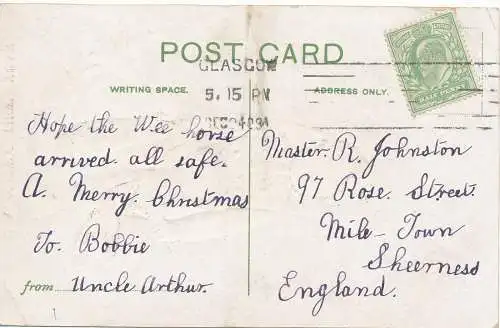 POST CARD
GLASGOW
5.15 PM
WRITING SPACE.
ADDRESS ONLY.
Hope the Wee horse
arrived all safe.
A. Merry. Christmas
To. Bobbie
from Uncle Arthur.
Master. R. Johnston
97 Rose. Street.
Mile-Town
Sheerness
England.
1